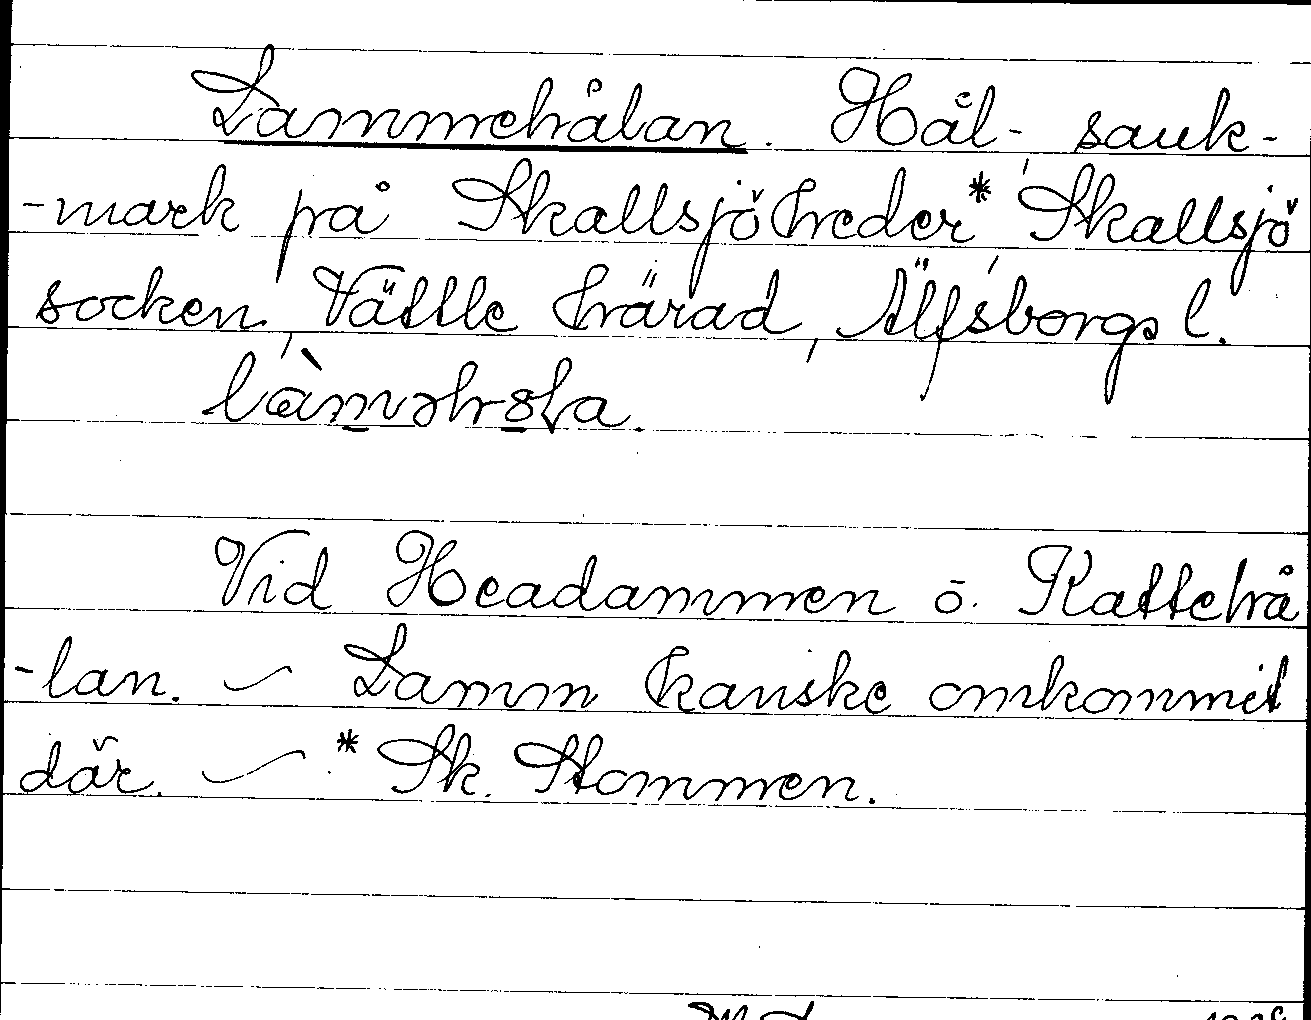 Lammehålan. Hål-, sank-
-mark på Skallsjöheder* Skallsjö
socken, Vättle härad, Älfsborgs l.
Vid Headammen ö. Kattehå
-lan. — Lamm kanske omkommit
där. — * Sk. Stommen.